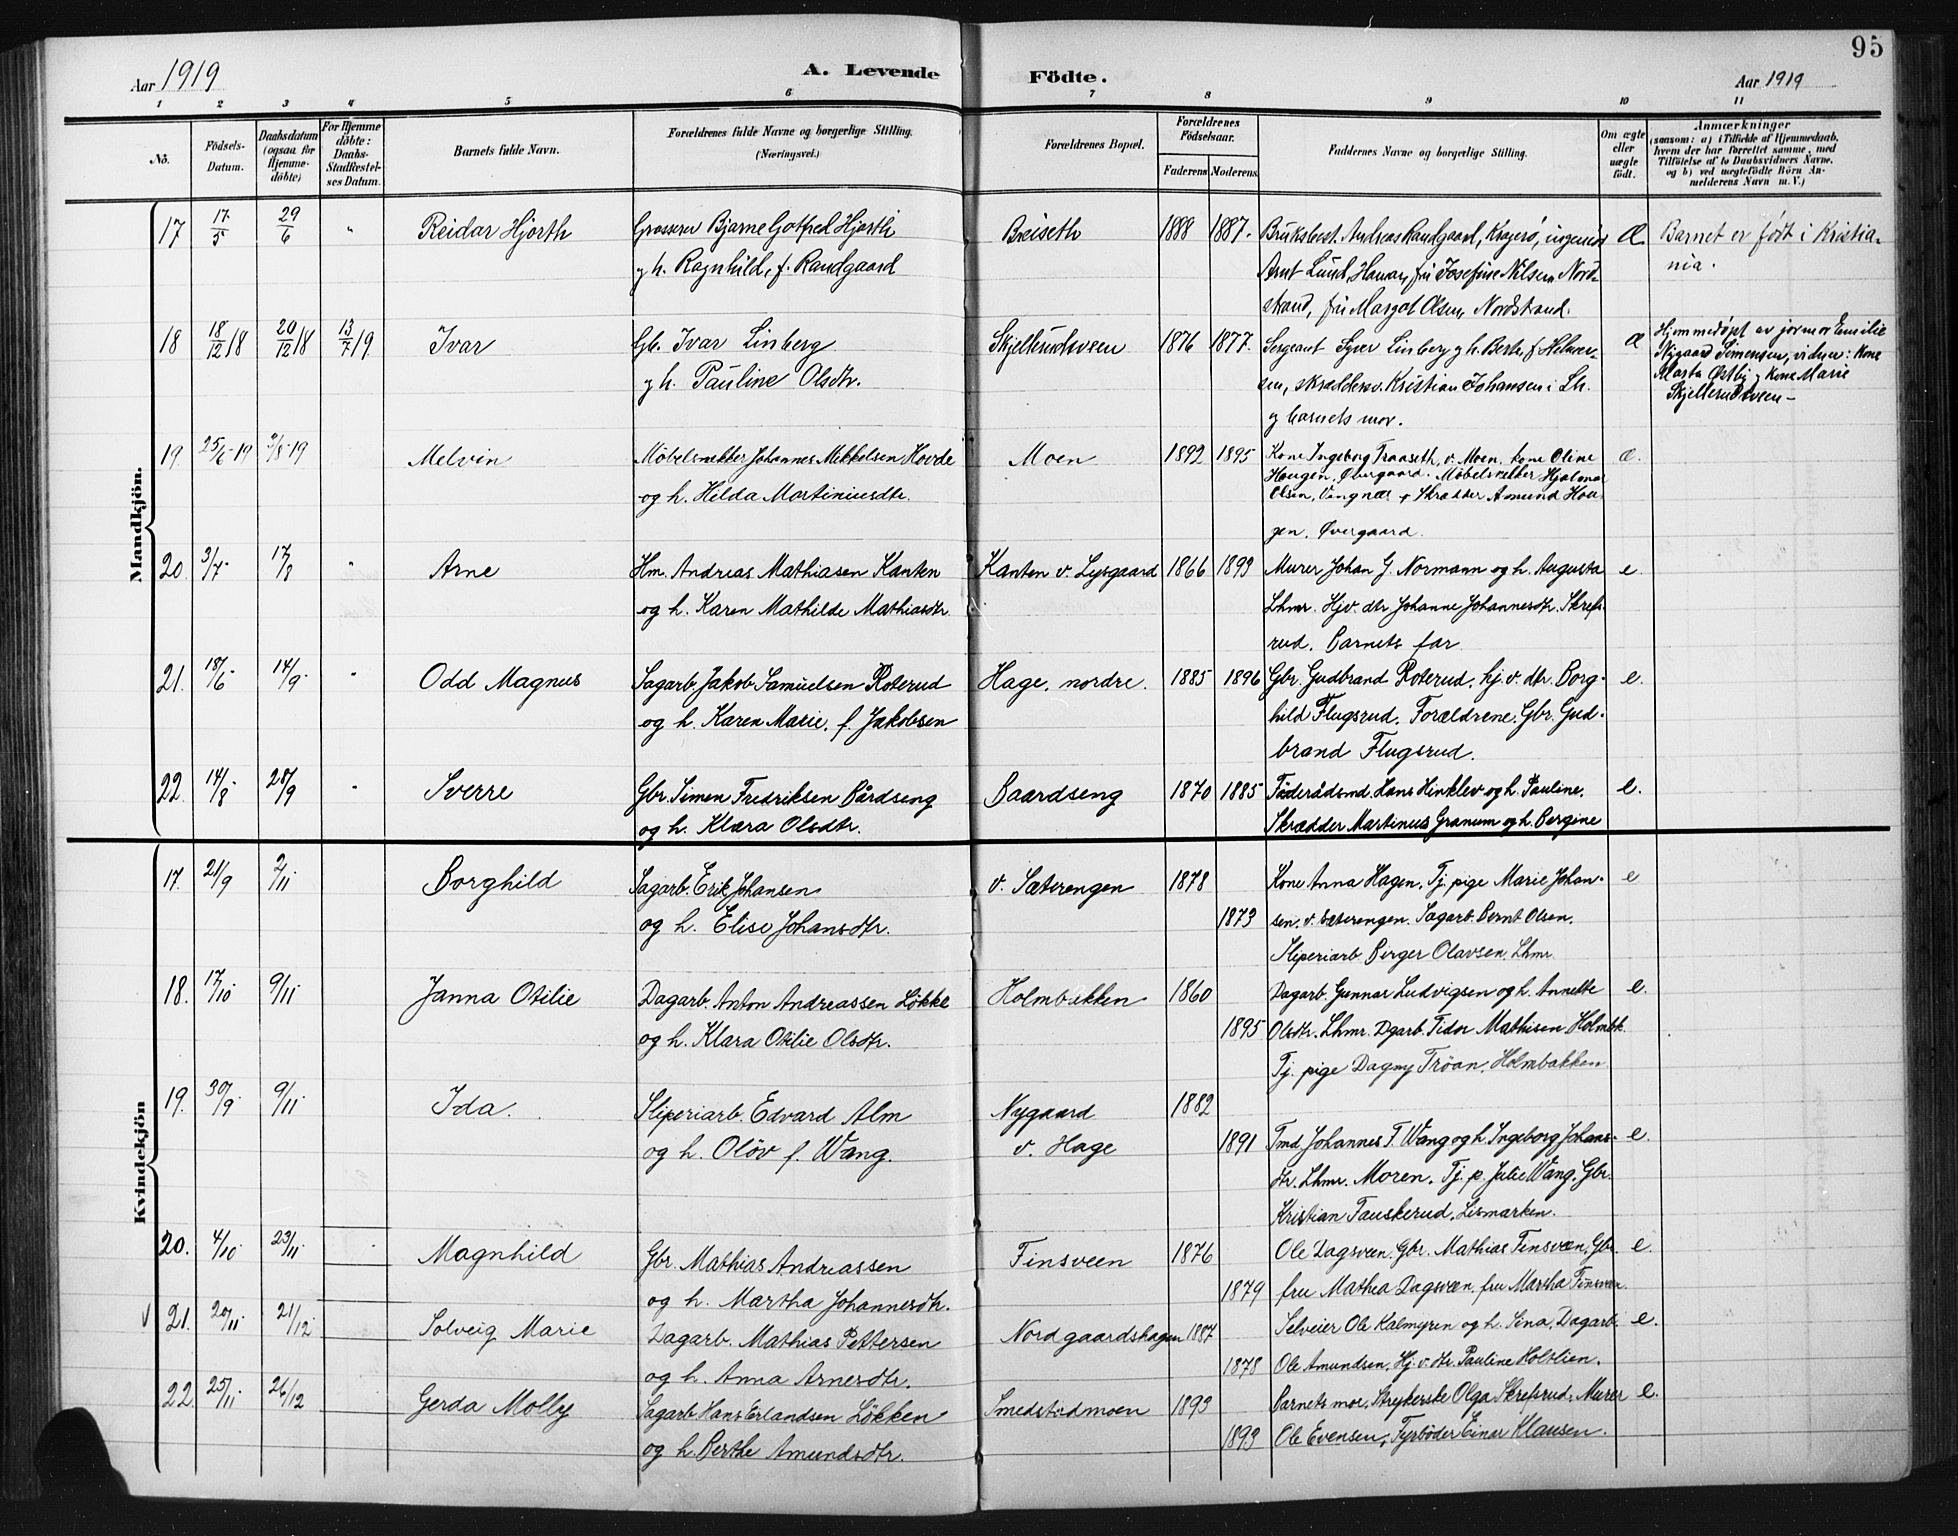 95
Aar 1919
A. Levende Födte.
Aar 1919
1 2 3 4 5 6 7 8 9 10 11
No.
Födsels-Datum.
Daabsdatum (ogsaa for Hjemme-döbte)
For Hjemme döbte: Daabs-Stadfæstel-ses Datum.
Barnets fulde Navn.
Forældrenes fulde Navne og borgerlige Stilling. (Næringsvei.)
Forældrenes Bopæl.
Forældrenes Födselsaar.
Faderens
Moderens
Faddernes Navne og borgerlige Stilling.
Om ægte eller uægte födt.
Anmærkninger
(saasom: a) i Tilfælde af Hjemmedaab, hvem der har forrettet samme, med Tilföielse af to Daabsvidners Navne, og b) ved uægtefödte Börn Anmelderens Navn m. V.)
Mandkjön.
17 17/5 29/6 " Reidar Hjorth Grosserer Bjarne Gotfred Hjorth Breiseth 1888 1887. Bruksbest. Andreas Randgaard, Kragerø, ingeniør æ Barnet er født i Kristia-
g h. Ragnhild, f. Randgaard Arnt Lund, Hamar, fru Josefine Nilsen Nord- nia.
strand, fru Margot Olsen, Nordstrand.
18 18/12 18 20/12 18 13/7 19 Ivar Gb. Ivar Linberg Skjellerudsveen 1876 1877. Sergeant Syver Linberg g h. Berte, f. Helmer- æ Hjemmedøpt av jormor Emilie
g h. Pauline Olsdtr. sen, skræddersv. Kristian Johansen i Lh. Nygaard Simensen, vidner: kone
g barnets mor. Marta Østby g kone Marie
Skjellerudsveen -
19. 25/6-19 3/8-19 Melvin Møbelsnekker Johannes Mikkelsen Hovde Moen 1892 1895 Kone Ingeborg Traaseth, v. Moen, kone Oline æ.
og h. Hilda Martiniusdtr. Haugen, Øvergaard. Møbelsnekker Hjalmar
Olsen, Vingnæs + Skrædder Amund Hau-
gen, Øvergaard.
20. 3/7 17/8 " Arne Hm. Andreas Mathiasen Kanten Kanten v. Lysgaard 1866 1893 Murer Johan G. Normann og h. Augusta e
og h. Karen Mathilde Mathiasdtr. Lhmr. Hjv. dtr Johanne Johannesdtr. Skrefs-
rud. Barnets far
21. 18/6 14/9 " Odd Magnus Sagarb. Jakob Samuelsen Roterud Hage, nordre. 1885 1896 Gbr. Gudbrand Roterud, hj. v. dtr. Borg- e.
og h. Karen Marie, f. Jakobsen hild Flugsrud. Forældrene. Gbr. Gud-
brand Flugsrud.
22. 14/8 28/9 " Sverre Gbr. Simen Fredriksen Bårdseng Baardseng 1870 1885 Föderådsmd. Hans Hinklev og h. Pauline. e.
og h. Klara Olsdtr. Skrædder Martinus Granum og h. Bergine
Kvindekjön
17. 21/9 2/11 Borghild Sagarb. Erik Johansen v. Sæterengen 1878 Kone Anna Hagen, Tj. pige Marie Johan- e
og h. Elise Johansdtr. 1873 sen v. Sæterengen. Sagarb. Bernt Olsen.
Sliperiarb Birger Olavsen. Lhmr.
18. 17/10 9/11 Janna Otilie Dagarb. Anton Andreassen Løkke Holmbakken 1860 Dagarb. Gunnar Ludvigsen og h. Annette e.
og h. Klara Otilie Olsdtr. 1895 Olsdtr. Lhmr. Dgarb. Tidor Mathisen Holmbk.
Tj. pige Dagny Tröan. Holmbakken
19. 30/9 9/11 Ida. Sliperiarb. Edvard Alm Nygaard 1882
og h. Olöv f. Wang. v. Hage 1891 Tmd. Johannes T. Wang og h. Ingeborg Johans- e.
dtr. Lhmr. Moren. Tj. p. Julie Wang. Gbr.
Kristian Tauskerud. Lismarken.
20. 4/10 23/11 Magnhild Gbr. Mathias Andreassen Finsveen 1876 Ole Dagsveen. Gbr. Mathias Finsveen, Gbr. e.
og h. Martha Johannesdtr. 1879 fru Mathea Dagsveen. fru Martha Finsveen
V 21. 20/11 21/12 Solveig Marie Dagarb. Mathias Pettersen Nordgaardshagen 1887 Selveier Ole Kalmyren og h. Sina. Dagarb. e.
og h. Anna Arnesdtr. 1878 Ole Amundsen. Hj. v. dtr. Pauline Holtlien.
22. 25/11 26/12 Gerda Molly Sagarb Hans Erlandsen Løkken Smedstadmoen 1893 Barnets mor, Strykerske Olga Skrefsrud. Murer e.
og h. Berthe Amundsdtr. 1893 Ole Evensen. Fyrböder Einar Klausen.